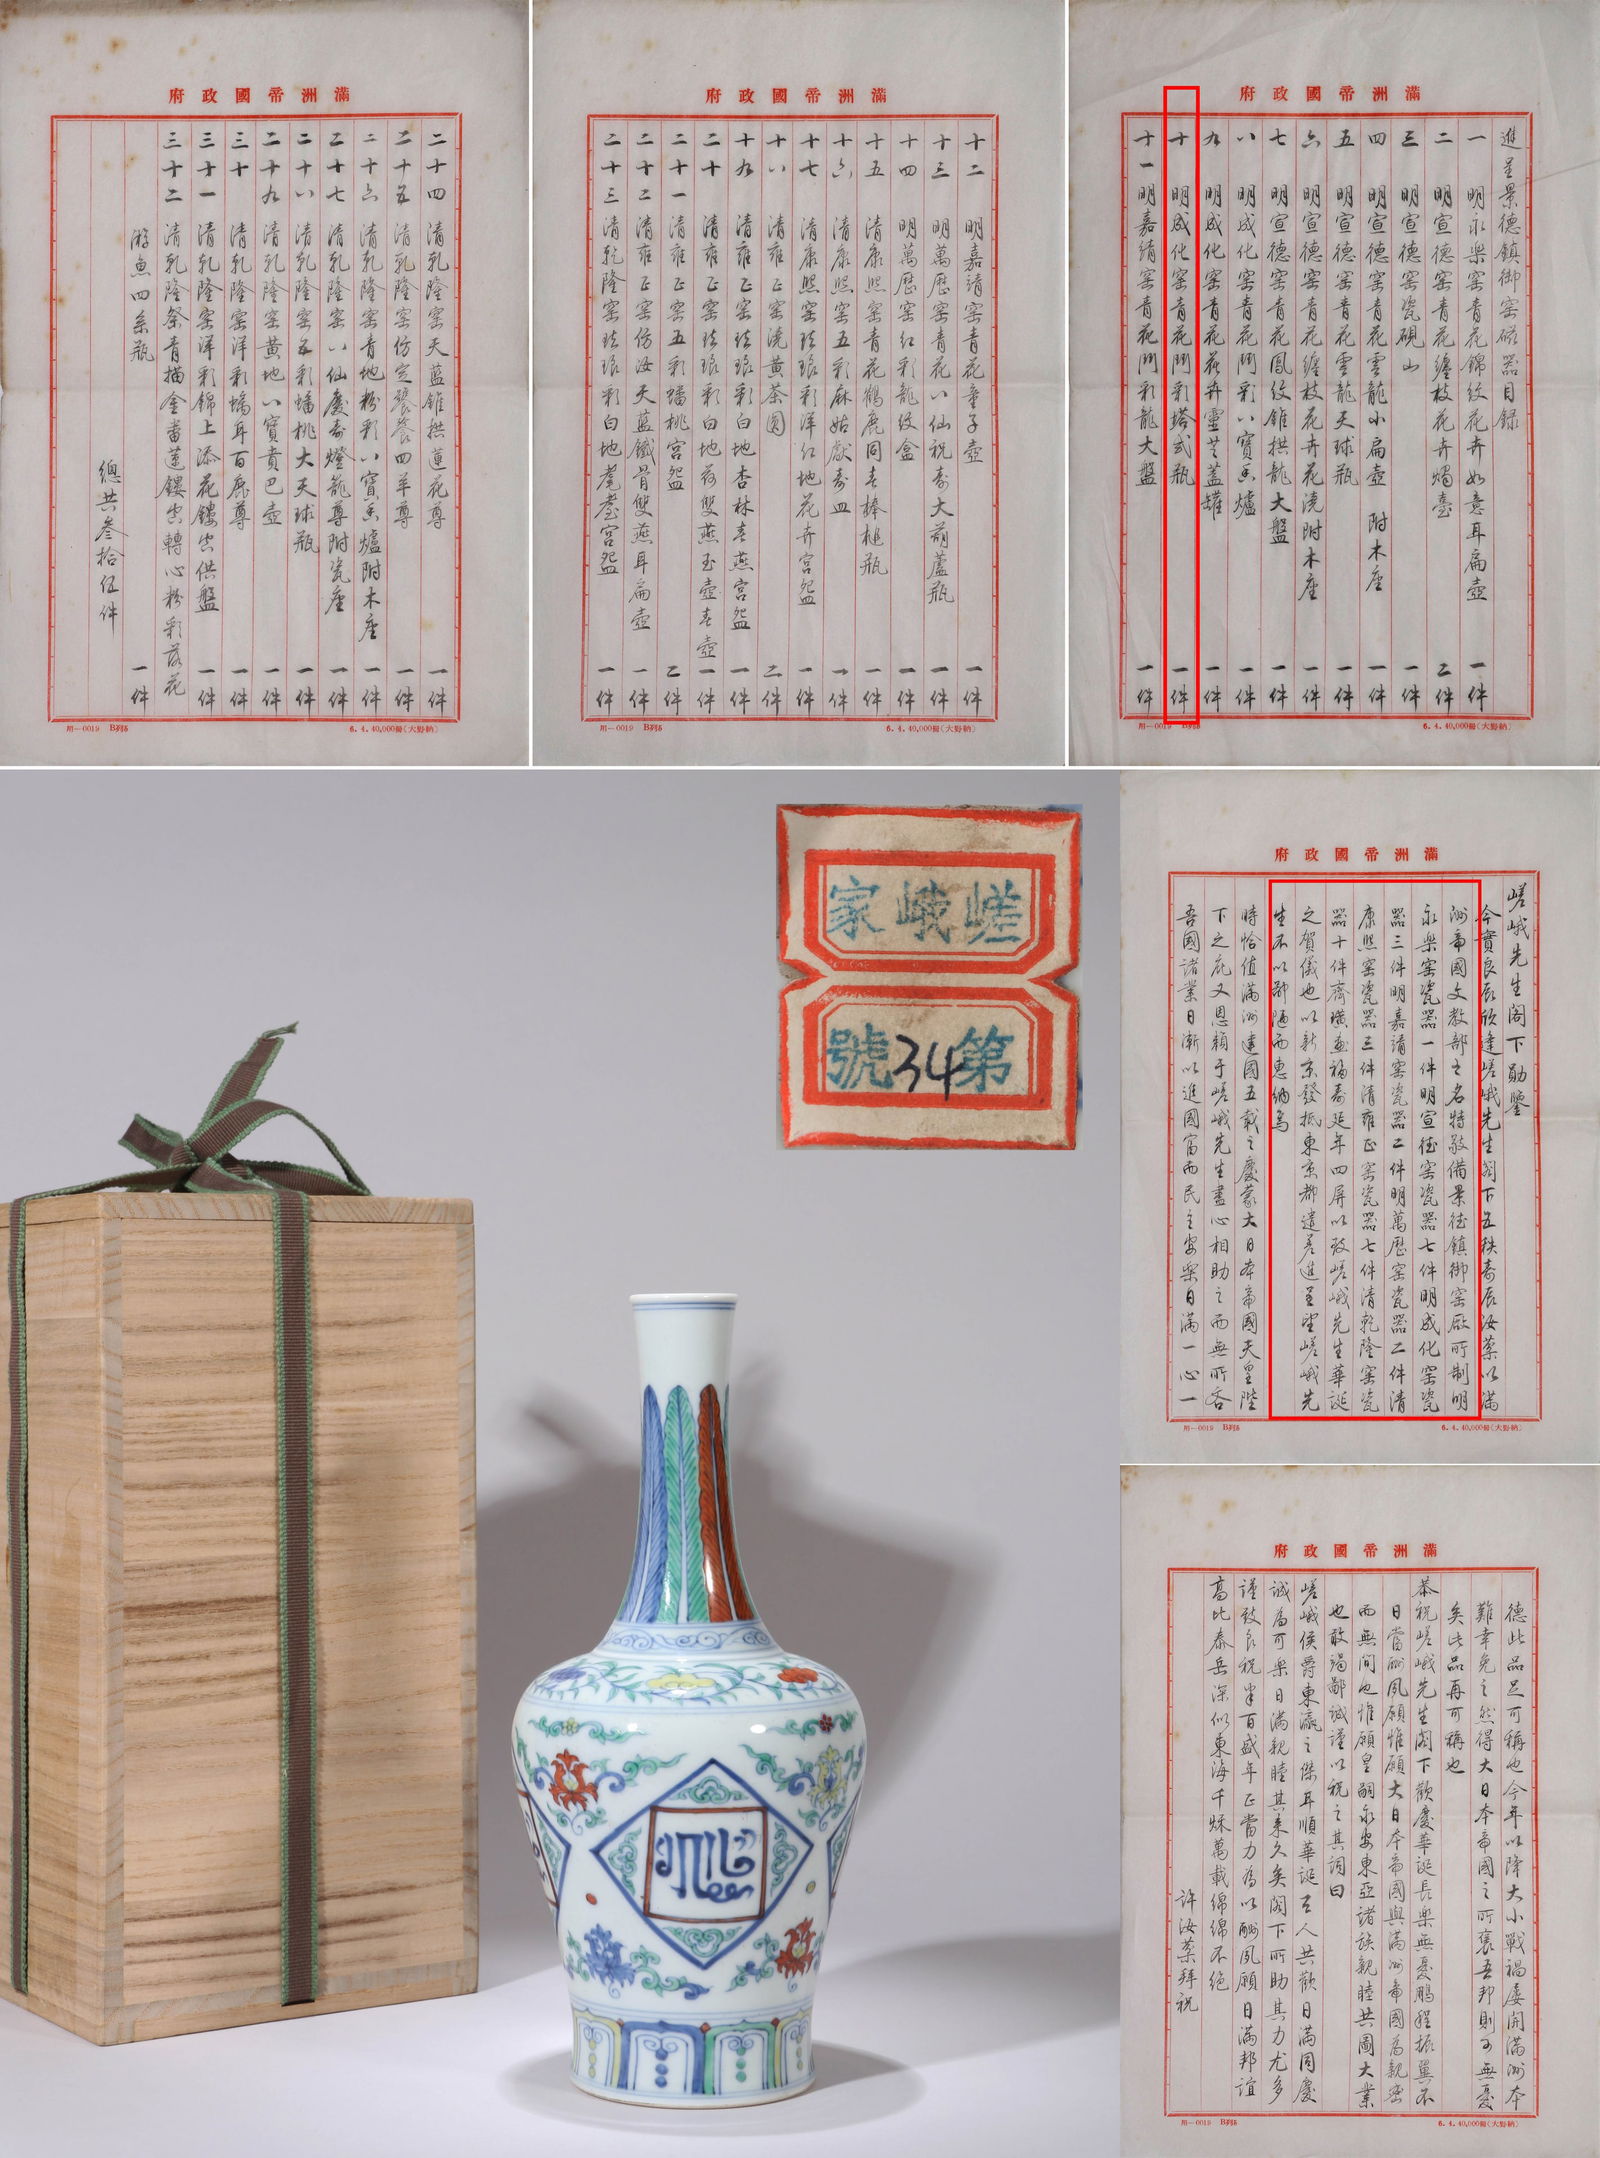 滿洲帝國政府
進呈景德鎮御窑磁器目録
一 明永樂窑青花錦紋花卉如意耳扁壺 一件
二 明宣德窑青花纏枝花卉燭臺 二件
三 明宣德窑瓷硯山 一件
四 明宣德窑青花雲龍小扁壺 附木座 一件
五 明宣德窑青花雲龍天球瓶 一件
六 明宣德窑青花纏枝花卉花澆附木座 一件
七 明宣德窑青花鳳紋錐拱龍大盤 一件
八 明成化窑青花鬥彩八寶香爐 一件
九 明成化窑青花花卉靈芝蓋罐 一件
十 明成化窑青花鬥彩塔式瓶 一件
十一 明嘉靖窑青花鬥彩龍大盤 一件
用—0019 B列5
6.4.40,000冊(大野納)
滿洲帝國政府
十二 明嘉靖窑青花童子壺 一件
十三 明萬歷窑青花八仙祝壽大葫蘆瓶 一件
十四 明萬歷窑紅彩龍紋盒 一件
十五 清康熙窑青花鶴鹿同春棒槌瓶 一件
十六 清康熙窑五彩麻姑獻壽皿 一件
十七 清康熙窑琺琅彩洋紅地花卉宮盌 一件
十八 清雍正窑澆黃茶圓 二件
十九 清雍正窑琺琅彩白地杏林春燕宮盌 一件
二十 清雍正窑琺琅彩白地荷雙燕玉壺春壺 一件
二十一 清雍正窑五彩蟠桃宮盌 二件
二十二 清雍正窑仿汝天藍鐵骨雙燕耳扁壺 一件
二十三 清乾隆窑琺琅彩白地耄耋宮盌 一件
用—0019 B列5
6.4.40,000冊(大野納)
滿洲帝國政府
二十四 清乾隆窑天藍錐拱蓮花尊 一件
二十五 清乾隆窑仿定饕餮四羊尊 一件
二十六 清乾隆窑青地粉彩八寶香爐附木座 一件
二十七 清乾隆窑八仙慶壽燈籠尊附瓷座 一件
二十八 清乾隆窑五彩蟠桃大天球瓶 一件
二十九 清乾隆窑黃地八寶賁巴壺 一件
三十 清乾隆窑洋彩螭耳百鹿尊 一件
三十一 清乾隆窑洋彩錦上添花鏤空供盤 一件
三十二 清乾隆祭青描金番蓮鏤空轉心粉彩落花
游魚四系瓶 一件
總共叁拾伍件
用—0019 B列5
6.4.40,000冊(大野納)
嵯峨家
第34號
滿洲帝國政府
嵯峨先生閣下勛鑒
今實良辰欣達嵯峨先生閣下五秩壽辰汝棻以滿
洲帝國文教部之名特敬備景德鎮御窑廠所制明
永樂窑瓷器一件明宣德窑瓷器七件明成化窑瓷
器三件明嘉靖窑瓷器二件明萬歷窑瓷器二件清
康熙窑瓷器三件清雍正窑瓷器七件清乾隆窑瓷
器十件齊璜畫福壽延年四屏以致嵯峨先生華誕
之賀儀也以新京發抵東京都遣差進呈望嵯峨先
生不以鄙陋而惠納焉
時恰值滿洲建國五載之慶蒙大日本帝國天皇陛
下之庇又恩賴于嵯峨先生盡心相助之而無所吝
吾國諸業日漸以進國富而民主安樂日滿一心一
用—0019 B列5
6.4.40,000冊(大野納)
滿洲帝國政府
德此品足可稱也今年以降大小戰禍屡開滿洲本
難幸免之然得大日本帝國之所襄吾邦則可無憂
矣此品再可稱也
恭祝嵯峨先生閣下歡慶華誕長樂無憂鵬程振翼不
日當酬夙願惟願大日本帝國與滿洲帝國為親密
而無間也惟願皇嗣永安東亞諸族親睦共圖大業
也敢竭鄙誠謹以祝之其詞曰
嵯峨侯爵東瀛之傑耳順華誕百人共歡日滿同慶
誠為可樂日滿親睦其来久矣閣下所助其力尤多
謹致良祝半百盛年正當力為以酬夙願日滿邦誼
高比泰岳深似東海千秋萬載綿綿不絶
許汝棻拜祝
用—0019 B列5
6.4.40,000冊(大野納)